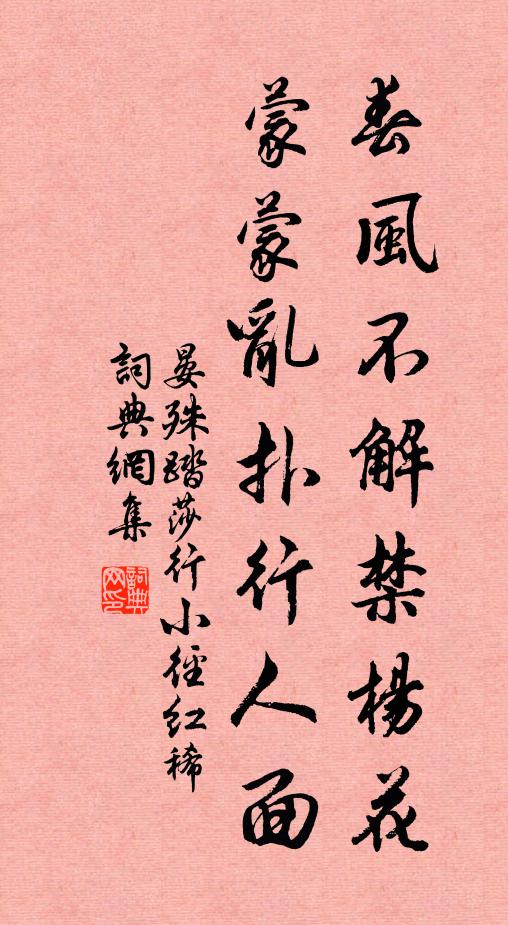 春風不解禁楊花
蒙蒙亂扑行人面
晏殊踏莎行小徑红稀
詞典網集
詞典网印